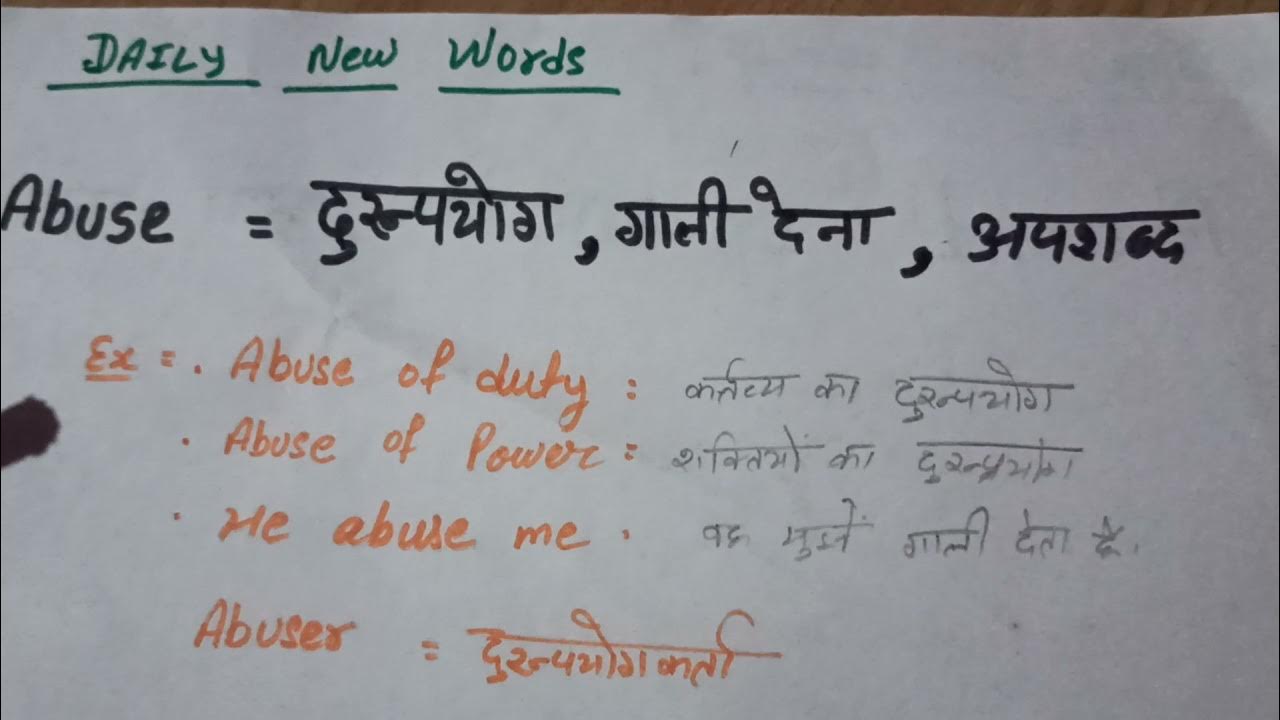 DAILY New Words
Abuse = दुरूपयोग, गाली देना, अपशब्द
Ex = . Abuse of duty : कर्तव्य का दुरूपयोग
. Abuse of Power : शक्तियों का दुरूपयोग
. He abuse me . वह मुझें गाली देता है.
Abuser = दुरूपयोगकर्ता